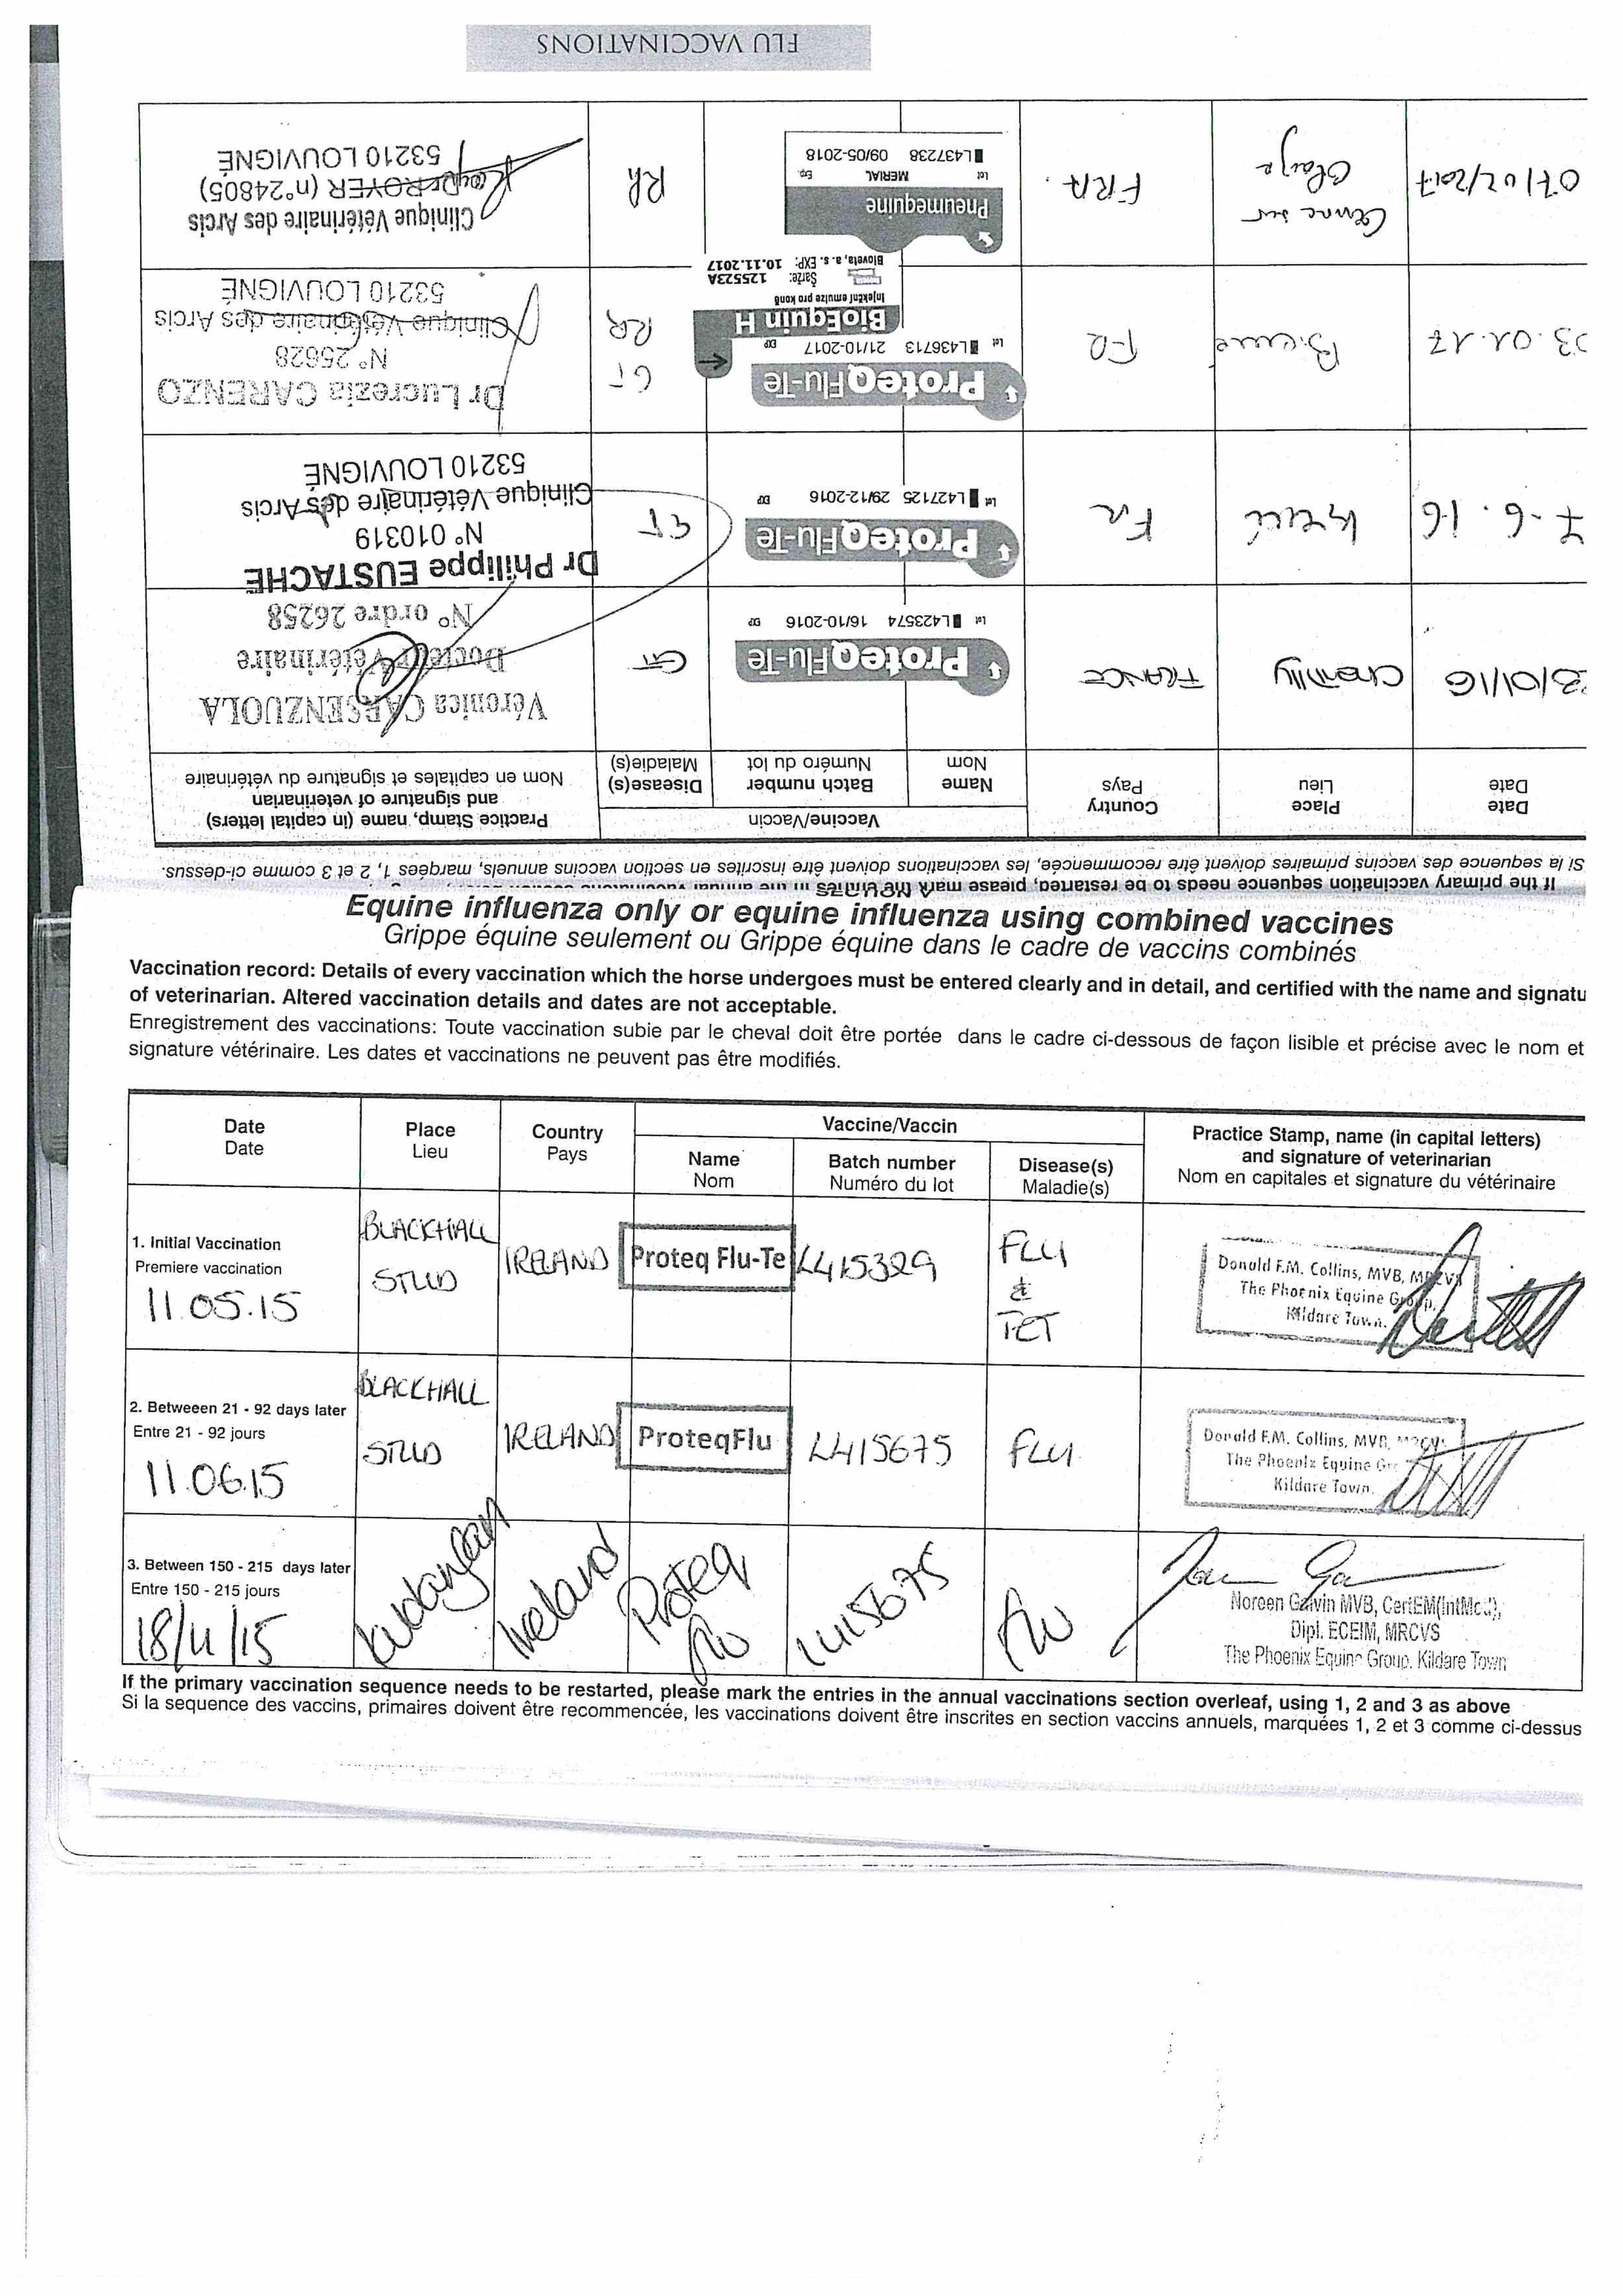 FLU VACCINATIONS
If the primary vaccination sequence needs to be restarted, please mark the entries in the annual vaccinations
Si la sequence des vaccins primaires doivent être recommencée, les vaccinations doivent être inscrites en section vaccins annuels, marquées 1, 2 et 3 comme ci-dessus.
Date
Date
Place
Lieu
Country
Pays
Vaccine/Vaccin
Name
Nom
Batch number
Numéro du lot
Disease(s)
Maladie(s)
Practice Stamp, name (in capital letters)
and signature of veterinarian
Nom en capitales et signature du vétérinaire
3/01/16
Chantilly
FRANCE
ProteqFlu-Te
Lot L423574 16/10-2016 EXP
GT
Véronica CARSENZUOLA
Docteur Vétérinaire
N° ordre 26258
7-6.16
FR
ProteqFlu-Te
Lot L427125 29/12-2016 EXP
GT
Dr Philippe EUSTACHE
N° 010319
Clinique Vétérinaire des Arcis
53210 LOUVIGNÉ
03.01.17
FR
ProteqFlu-Te
Lot L436713 21/10-2017 EXP
BioEquin H
Injekční emulze pro koně
Šarže: 125523A
Bioveta, a. s. EXP: 10.11.2017
GT
RR
Dr Lucrezia CARENZO
N° 25628
Clinique Vétérinaire des Arcis
53210 LOUVIGNÉ
07/02/2017
FRA.
Pneumequine
Lot MERIAL Exp.
L437238 09/05-2018
Rh
Clinique Vétérinaire des Arcis
Dr ROYER (n°24805)
53210 LOUVIGNÉ
Equine influenza only or equine influenza using combined vaccines
Grippe équine seulement ou Grippe équine dans le cadre de vaccins combinés
Vaccination record: Details of every vaccination which the horse undergoes must be entered clearly and in detail, and certified with the name and signatu
of veterinarian. Altered vaccination details and dates are not acceptable.
Enregistrement des vaccinations: Toute vaccination subie par le cheval doit être portée dans le cadre ci-dessous de façon lisible et précise avec le nom et
signature vétérinaire. Les dates et vaccinations ne peuvent pas être modifiés.
Date
Date
Place
Lieu
Country
Pays
Vaccine/Vaccin
Name
Nom
Batch number
Numéro du lot
Disease(s)
Maladie(s)
Practice Stamp, name (in capital letters)
and signature of veterinarian
Nom en capitales et signature du vétérinaire
1. Initial Vaccination
Premiere vaccination
11.05.15
BLACKHALL
STUD
IRELAND
Proteq Flu-Te
L415329
FLU
&
TET
Donald F.M. Collins, MVB, MRCVS
The Phoenix Equine Group,
Kildare Town.
2. Betweeen 21 - 92 days later
Entre 21 - 92 jours
11.06.15
BLACKHALL
STUD
IRELAND
ProteqFlu
L415675
FLU
Donald F.M. Collins, MVB, MRCVS
The Phoenix Equine Gr
Kildare Town.
3. Between 150 - 215 days later
Entre 150 - 215 jours
18/11/15
Ireland
Proteq
Flu
L415675
Flu
Noreen Galvin MVB, CertEM(IntMed),
Dipl. ECEIM, MRCVS
The Phoenix Equine Group. Kildare Town
If the primary vaccination sequence needs to be restarted, please mark the entries in the annual vaccinations section overleaf, using 1, 2 and 3 as above
Si la sequence des vaccins, primaires doivent être recommencée, les vaccinations doivent être inscrites en section vaccins annuels, marquées 1, 2 et 3 comme ci-dessus